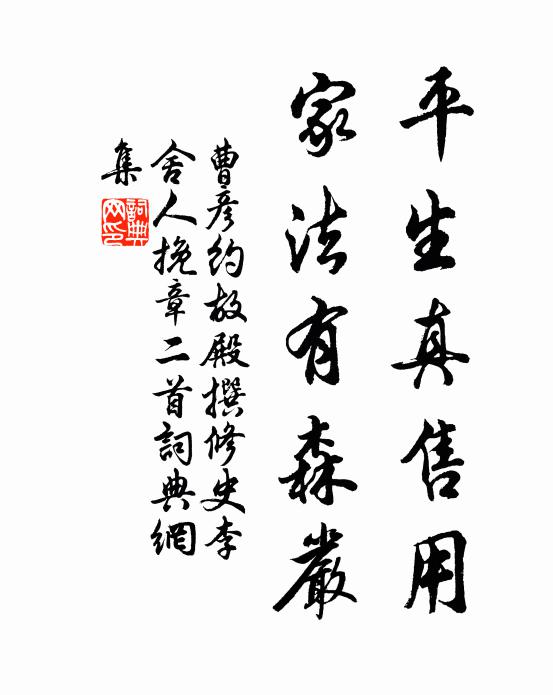 平生真售用
家法有森嚴
曹彥約故殿撰修史李
舍人挽章二首詞典網
集
詞典
网印